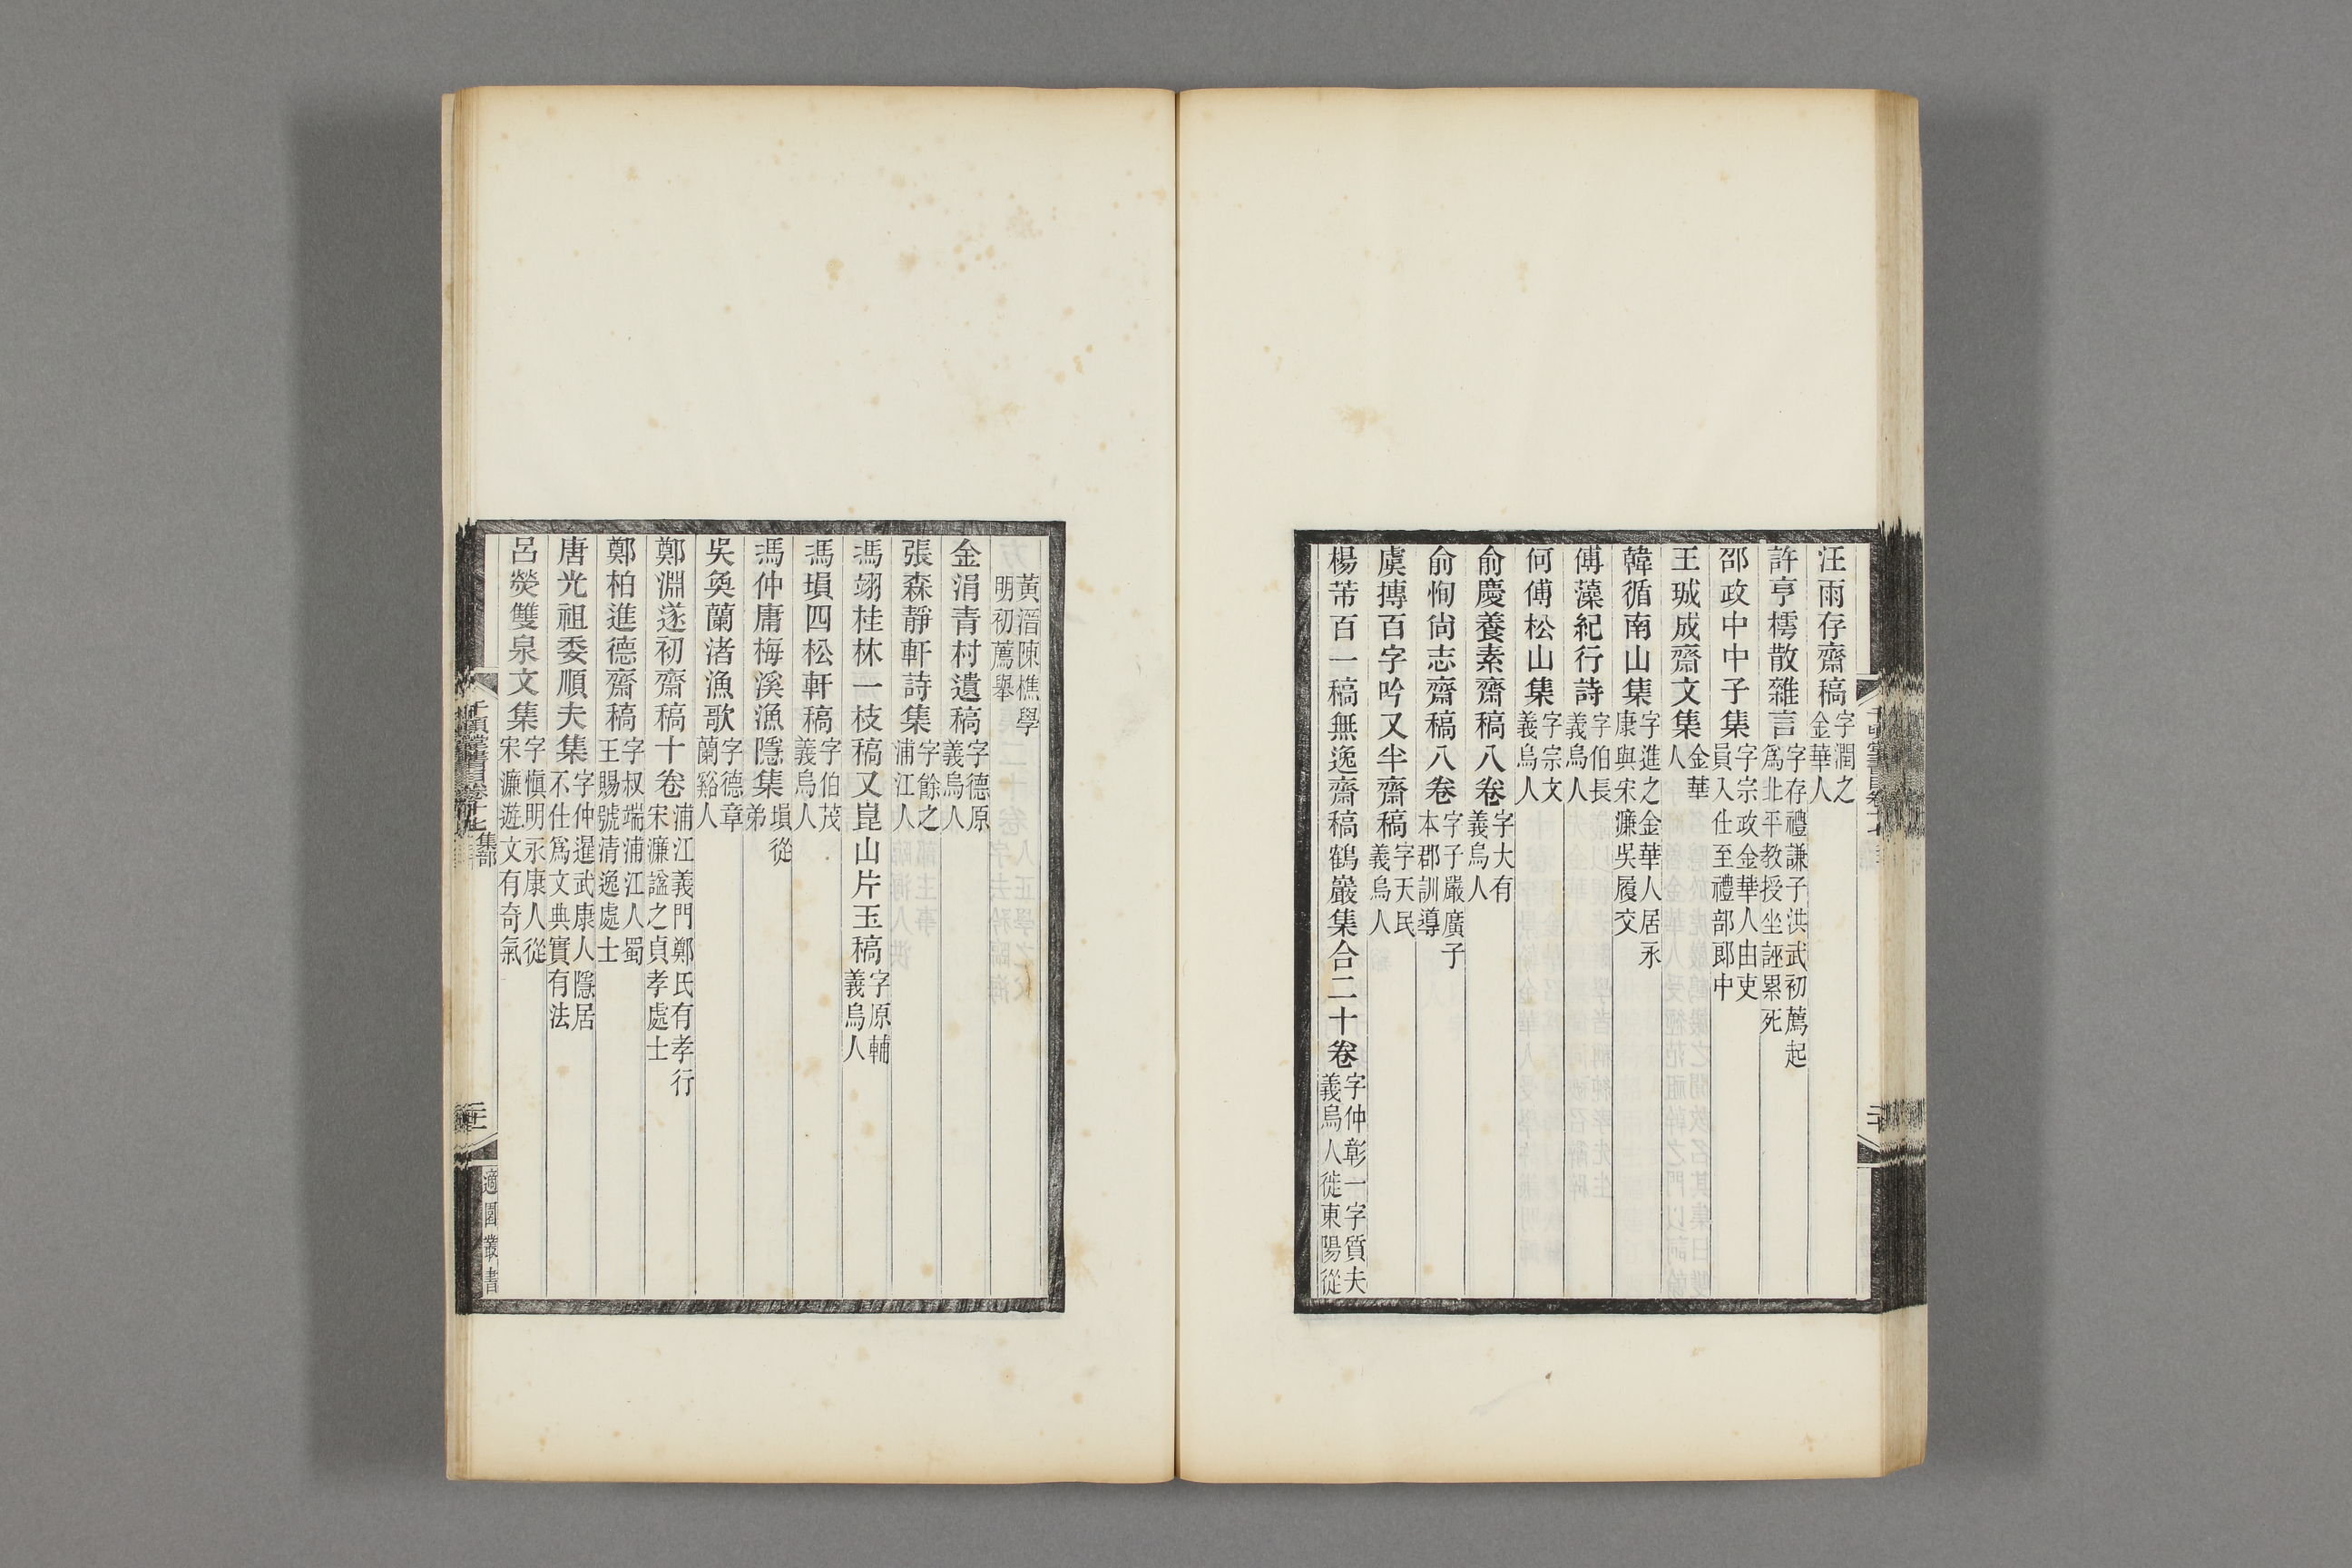 汪雨存齋稿字潤之金華人
許亨樗散雜言字存禮謙子洪武初薦起爲北平教授坐誣累死
邵政中中子集字宗政金華人由吏員入仕至禮部郎中
王珹成齋文集金華人
韓循南山集字進之金華人居永康與宋濂吳履交
傅藻紀行詩字伯長義烏人
何傅松山集字宗文義烏人
俞慶養素齋稿八卷字大有義烏人
俞恂尙志齋稿八卷字子嚴廣子本郡訓導
虞摶百字吟又半齋稿字天民義烏人
楊芾百一稿無逸齋稿鶴巖集合二十卷字仲彰一字質夫義烏人徙東陽從
黃溍陳樵學明初薦舉
金涓青村遺稿字德原義烏人
張森靜軒詩集字餘之浦江人
馮翊桂林一枝稿又崑山片玉稿字原輔義烏人
馮塤四松軒稿字伯茂義烏人
馮仲庸梅溪漁隱集塤從弟
吳奐蘭渚漁歌字德章蘭谿人
鄭淵遂初齋稿十卷浦江義門鄭氏有孝行宋濂諡之貞孝處士
鄭柏進德齋稿字叔端浦江人蜀王賜號清逸處士
唐光祖委順夫集字仲暹武康人隱居不仕爲文典實有法
呂熒雙泉文集字愼明永康人從宋濂遊文有奇氣
千頃堂書目卷十七 集部
適園叢書